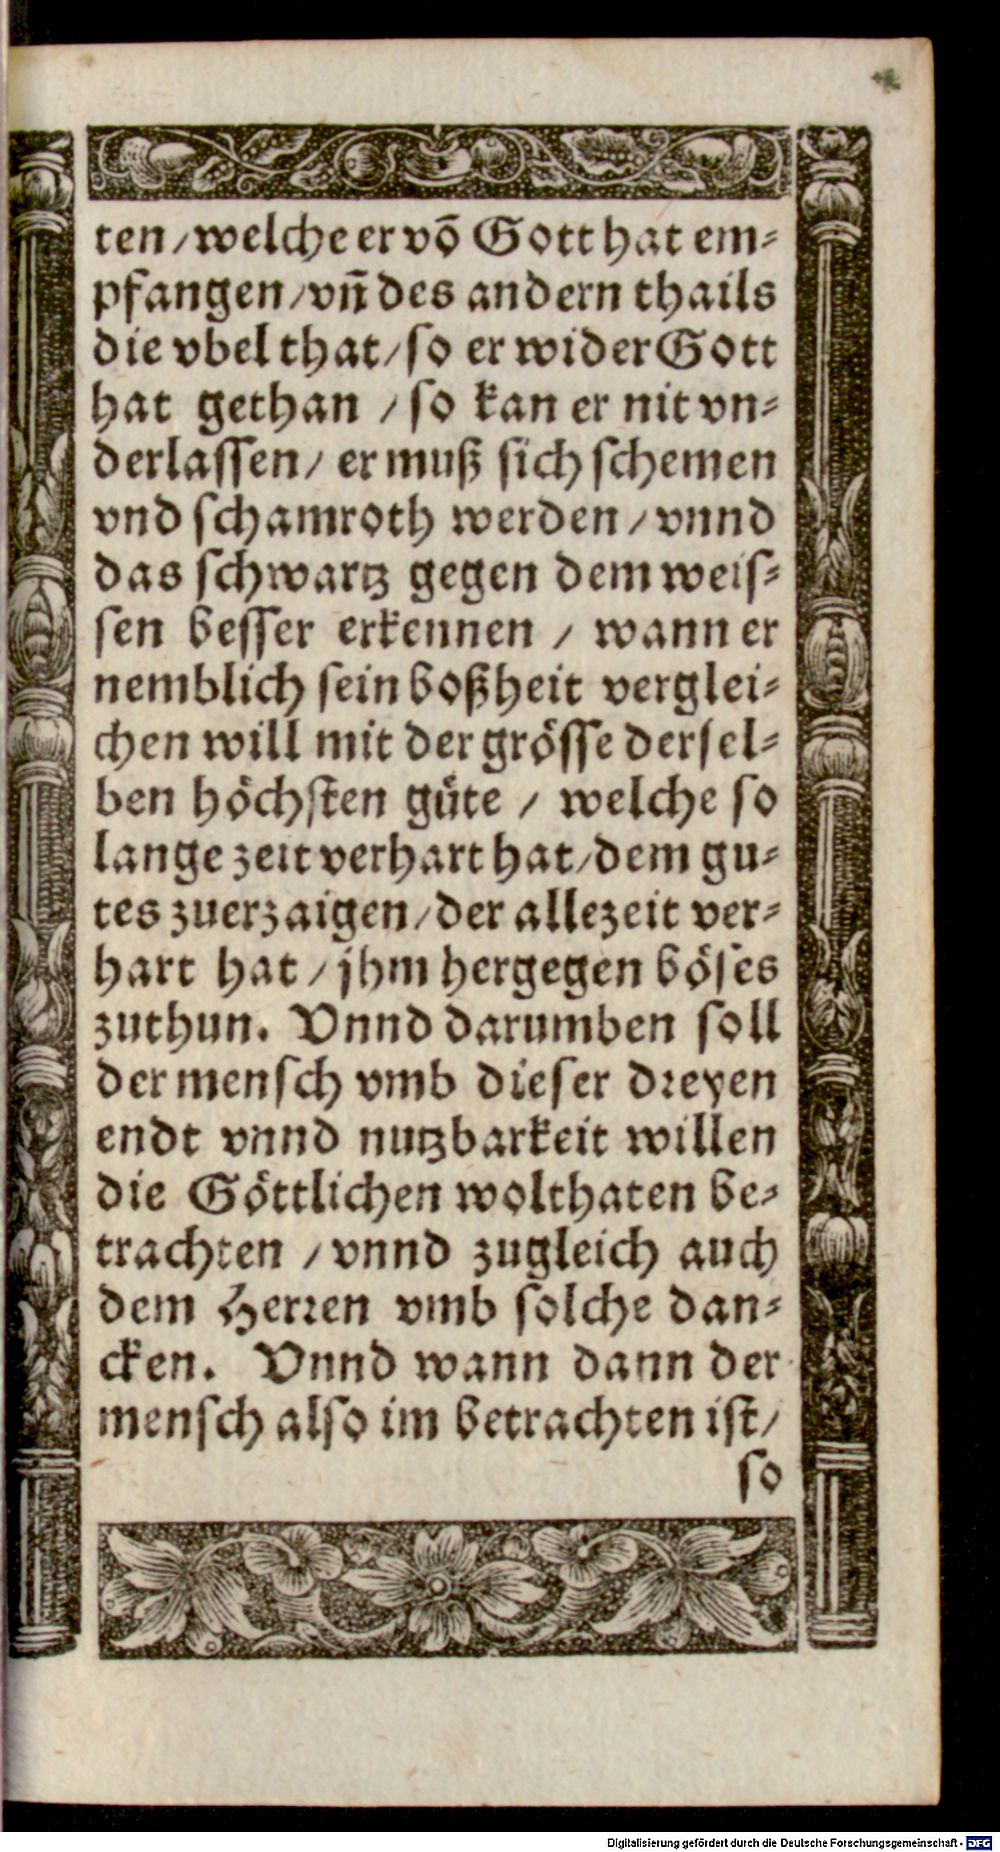 ten/welche er võ Gott hat em⸗
pfangen/vñ des andern thails
die vbel that/so er wider Gott
hat gethan / so kan er nit vn⸗
derlassen/ er muß sich schemen
vnd schamroth werden / vnnd
das schwartz gegen dem weis⸗
sen besser erkennen / wann er
nemblich sein boßheit verglei⸗
chen will mit der grösse dersel⸗
ben höchsten güte / welche so
lange zeit verhart hat/dem gu⸗
tes zuerzaigen/der allezeit ver⸗
hart hat / jhm hergegen böses
zuthun. Vnnd darumben soll
der mensch vmb dieser dreyen
endt vnnd nutzbarkeit willen
die Göttlichen wolthaten be⸗
trachten / vnnd zugleich auch
dem Herren vmb solche dan⸗
cken. Vnnd wann dann der
mensch also im betrachten ist/
so
Digitalisierung gefördert durch die Deutsche Forschungsgemeinschaft - DFG